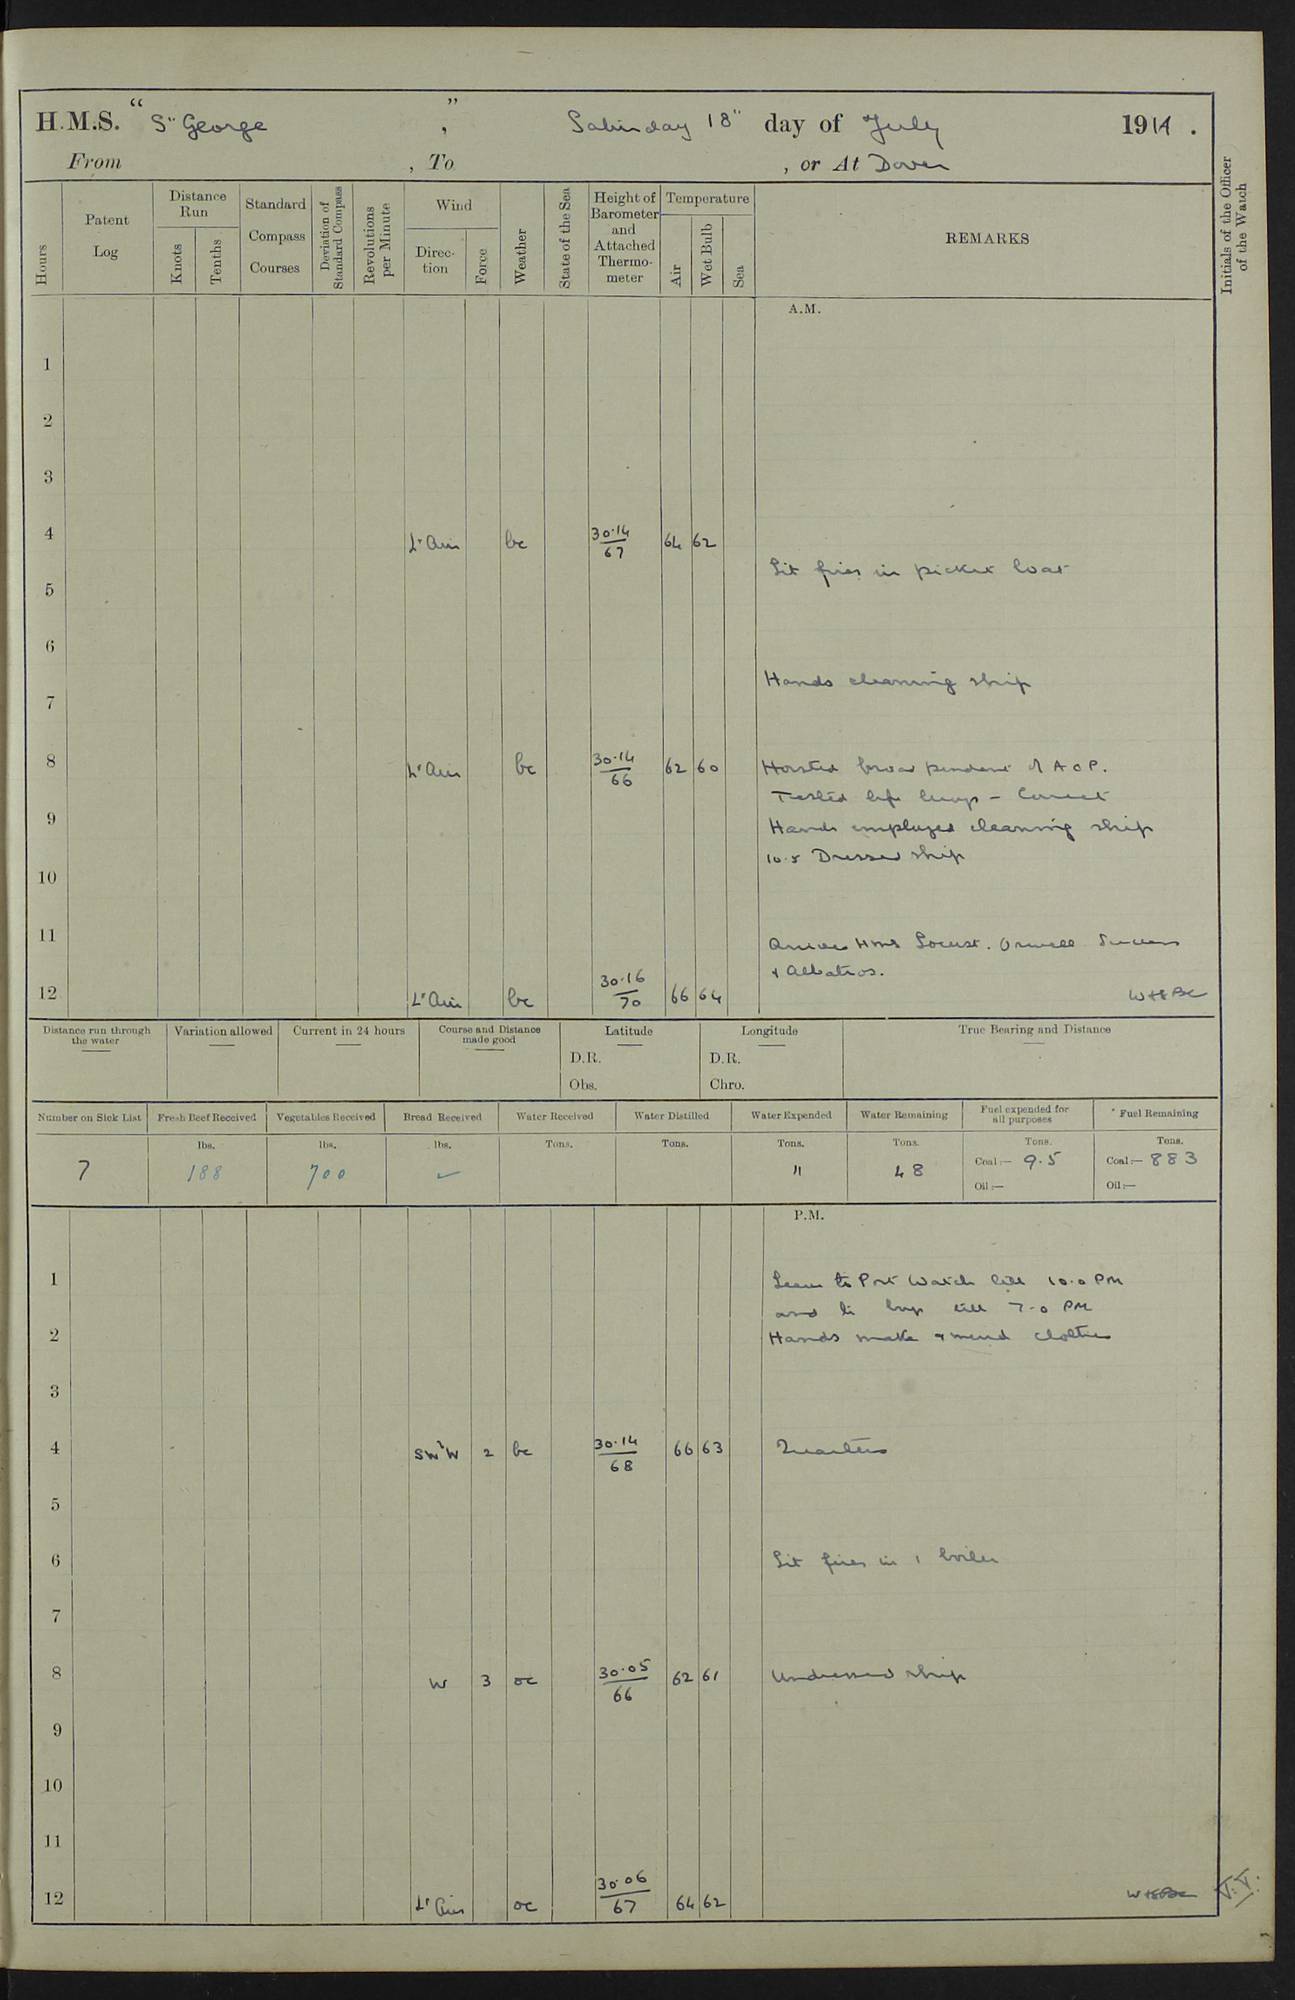 H.M.S. “ St George ” , Saturday 18th day of July 1914 .
From , To , or At Dover
Hours
Patent Log
Distance Run
Knots Tenths
Standard Compass Courses
Deviation of Standard Compass
Revolutions per Minute
Wind
Direction Force
Weather
State of the Sea
Height of Barometer and Attached Thermometer
Temperature
Air Wet Bulb Sea
REMARKS
Initials of the Officer of the Watch
A.M.
1
2
3
4 Lt Airs bc 30.14/67 64 62
Lit fires in picket boat
5
6
Hands cleaning ship
7
8 Lt Airs bc 30.14/66 62 60 Hoisted broad pendant of A o P.
Tested life buoys – Correct
9 Hands employed cleaning ship
10.5 Dressed ship
10
11 HMS Locust. Orwell
& Albatros.
12 Lt Airs bc 30.16/70 66 64
Distance run through the water
Variation allowed
Current in 24 hours
Course and Distance made good
Latitude
D.R.
Obs.
Longitude
D.R.
Chro.
True Bearing and Distance
Number on Sick List Fresh Beef Received Vegetables Received Bread Received Water Received Water Distilled Water Expended Water Remaining Fuel expended for all purposes Fuel Remaining
lbs. lbs. lbs. Tons. Tons. Tons. Tons. Tons. Tons.
7 188 700 ✓ " 48 Coal:— 9.5 Coal:— 883
Oil:— Oil:—
P.M.
1 Leave to Port Watch till 10.0 PM
and to boys till 7.0 PM
2 Hands make & mend clothes
3
4 SWbW 2 bc 30.14/68 66 63 Quarters
5
6 Lit fires in 1 boiler
7
8 W 3 oc 30.05/66 62 61 Undressed ship
9
10
11
12 Lt Airs oc 30.06/67 64 62